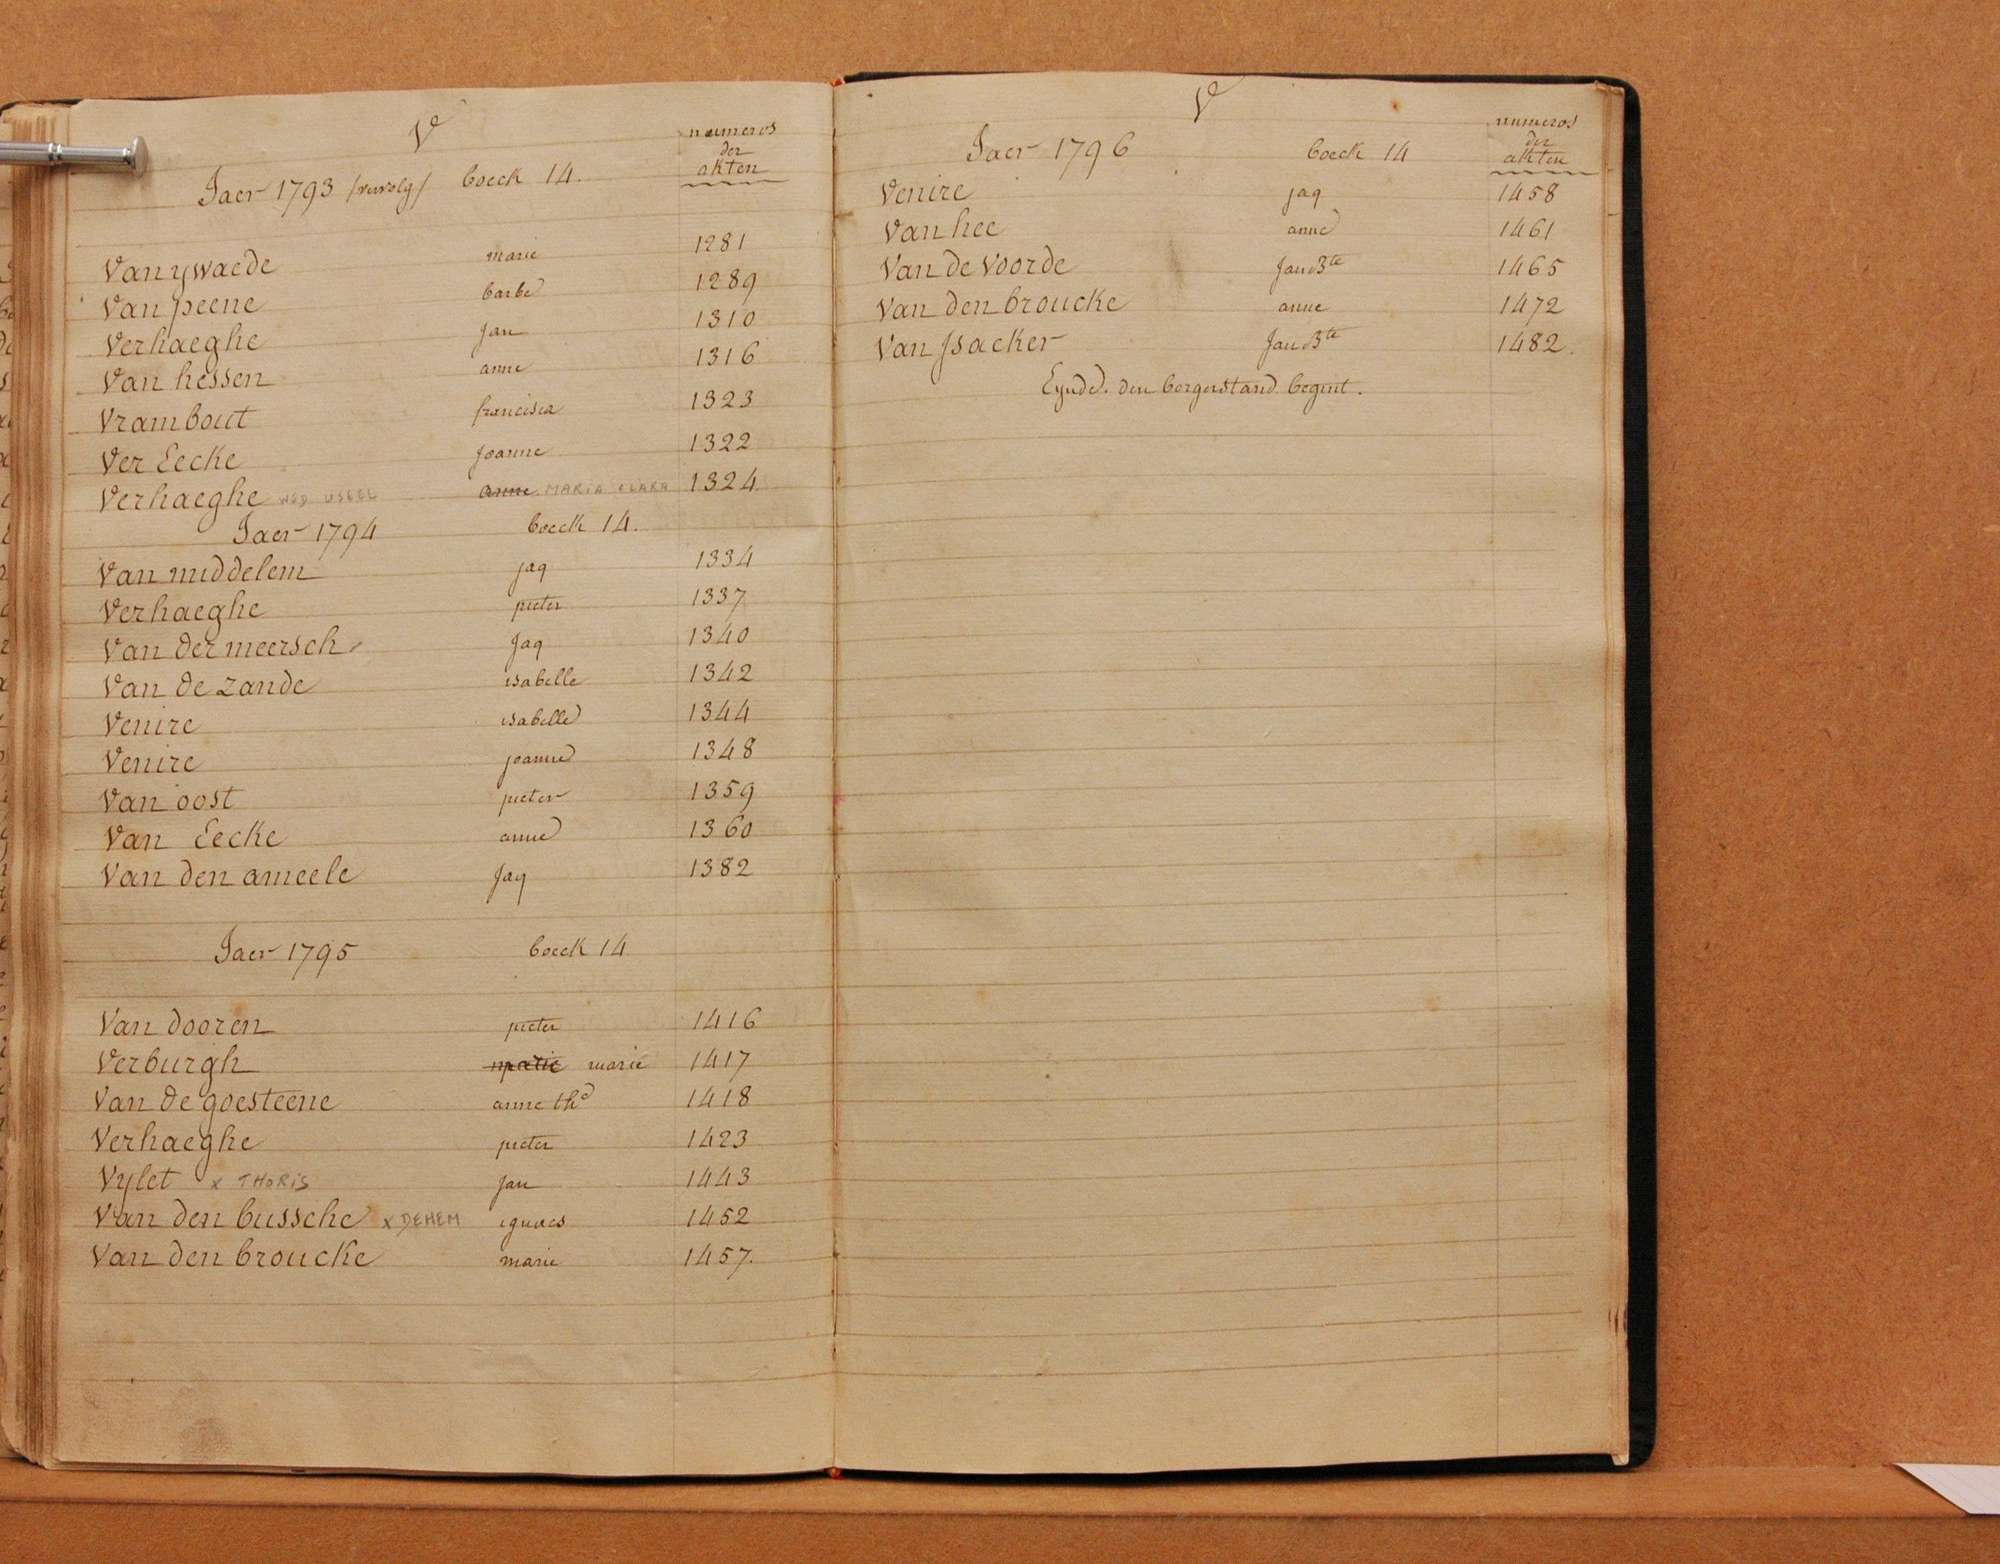 V
numeros
der
akten
Jaer 1793 /vervolg/ boeck 14.
Van ywaede marie 1281
Van peene barbe 1289
Verhaeghe Jan 1310
Van hessen anne 1316
Vrambout francisca 1323
Ver Eecke joanne 1322
Verhaeghe WED USEEL anne MARIA CLARA 1324
Jaer 1794 boeck 14.
Van middelem jaq 1334
Verhaeghe pieter 1337
Van der meersch Jaq 1340
Van de zande isabelle 1342
Venire isabelle 1344
Venire joanne 1348
Van oost pieter 1359
Van Eecke anne 1360
Van den ameele Jaq 1382
Jaer 1795 boeck 14
Van dooren pieter 1416
Verburgh marie 1417
Van de goesteene anne th^e 1418
Verhaeghe pieter 1423
Vylet x THORIS Jan 1443
Van den bussche x DEHEM ignaes 1452
Van den broucke marie 1457.
V
numeros
der
akten
Jaer 1796 boeck 14
Venire jaq 1458
Van hee anne 1461
Van de Voorde Jan B^te 1465
Van den broucke anne 1472
Van Jsacker Jan B^te 1482.
Eynde. den borgerstand begint.